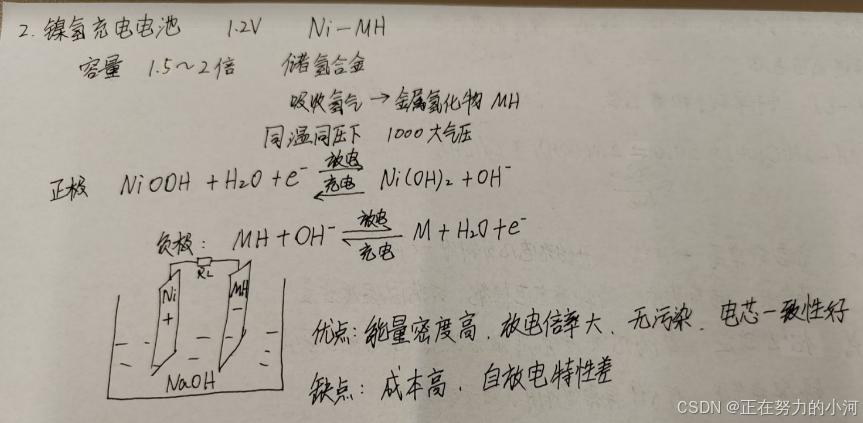 2. 镍氢充电电池 1.2V Ni-MH
容量 1.5~2倍 储氢合金
吸收氢气 → 金属氢化物 MH
同温同压下 1000大气压
正极 NiOOH + H2O + e⁻ 放电 ⇌ 充电 Ni(OH)2 + OH⁻
负极: MH + OH⁻ 放电 ⇌ 充电 M + H2O + e⁻
RL
Ni MH
+ -
NaOH
优点: 能量密度高、放电倍率大、无污染、电芯一致性好
缺点: 成本高、自放电特性差
CSDN @正在努力的小河